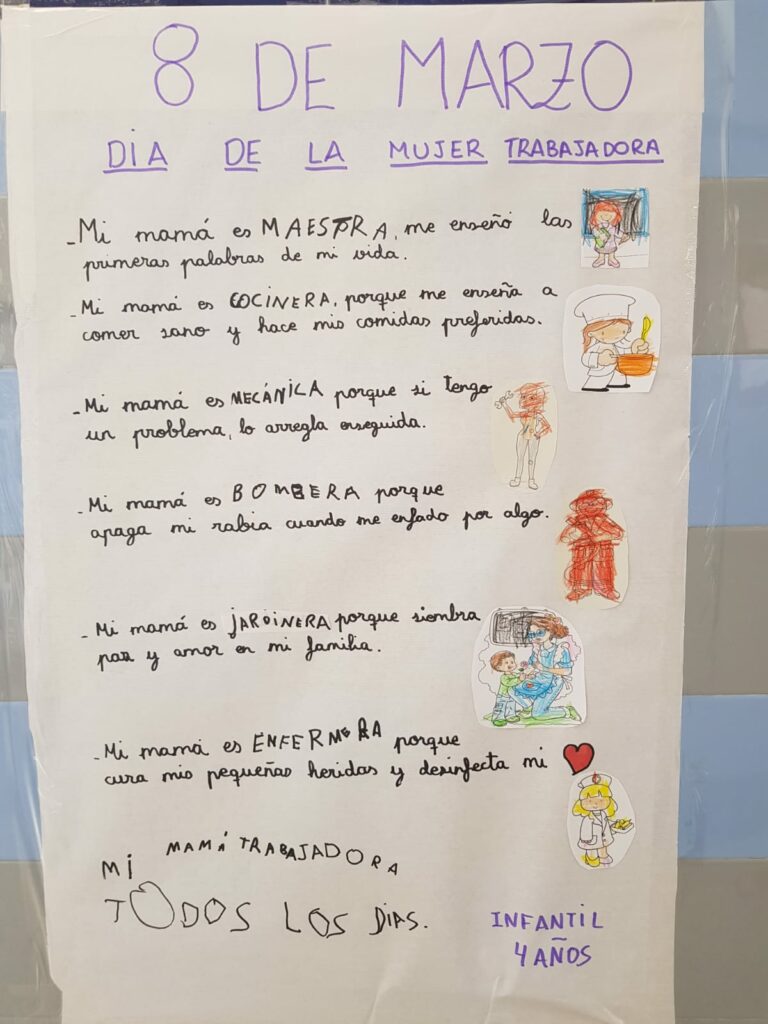 8 DE MARZO
DIA DE LA MUJER TRABAJADORA
-Mi mamá es MAESTRA, me enseñó las
primeras palabras de mi vida.
-Mi mamá es COCINERA, porque me enseña a
comer sano y hace mis comidas preferidas.
-Mi mamá es MECÁNICA porque si tengo
un problema, lo arregla enseguida.
-Mi mamá es BOMBERA porque
apaga mi rabia cuando me enfado por algo.
-Mi mamá es JARDINERA porque siembra
paz y amor en mi familia.
-Mi mamá es ENFERMERA porque
cura mis pequeñas heridas y desinfecta mi
MI MAMÁ TRABAJADORA
TODOS LOS DIAS.
INFANTIL
4 AÑOS